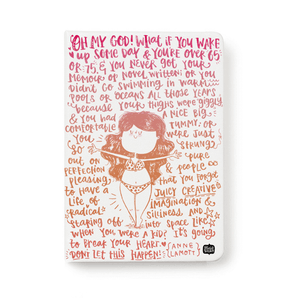 OH MY GOD! WHAT IF YOU WAKE
UP SOME DAY & YOU'RE OVER 65
OR 75, & YOU NEVER GOT YOUR
MEMOIR OR NOVEL WRITTEN; OR YOU
DIDN'T GO SWIMMING IN WARM
POOLS OR OCEANS ALL THOSE YEARS
BECAUSE YOUR THIGHS WERE JIGGLY
& YOU HAD A NICE BIG
COMFORTABLE TUMMY; OR
YOU WERE JUST
SO STRUNG
OUT ON PURE
PERFECTION & PEOPLE
PLEASING, THAT YOU FORGET
TO HAVE A JUICY CREATIVE
LIFE OF IMAGINATION &
RADICAL SILLINESS AND
STARING OFF INTO SPACE LIKE
WHEN YOU WERE A KID? IT'S GOING
TO BREAK YOUR HEART. {ANNE
DON'T LET THIS HAPPEN! LAMOTT}